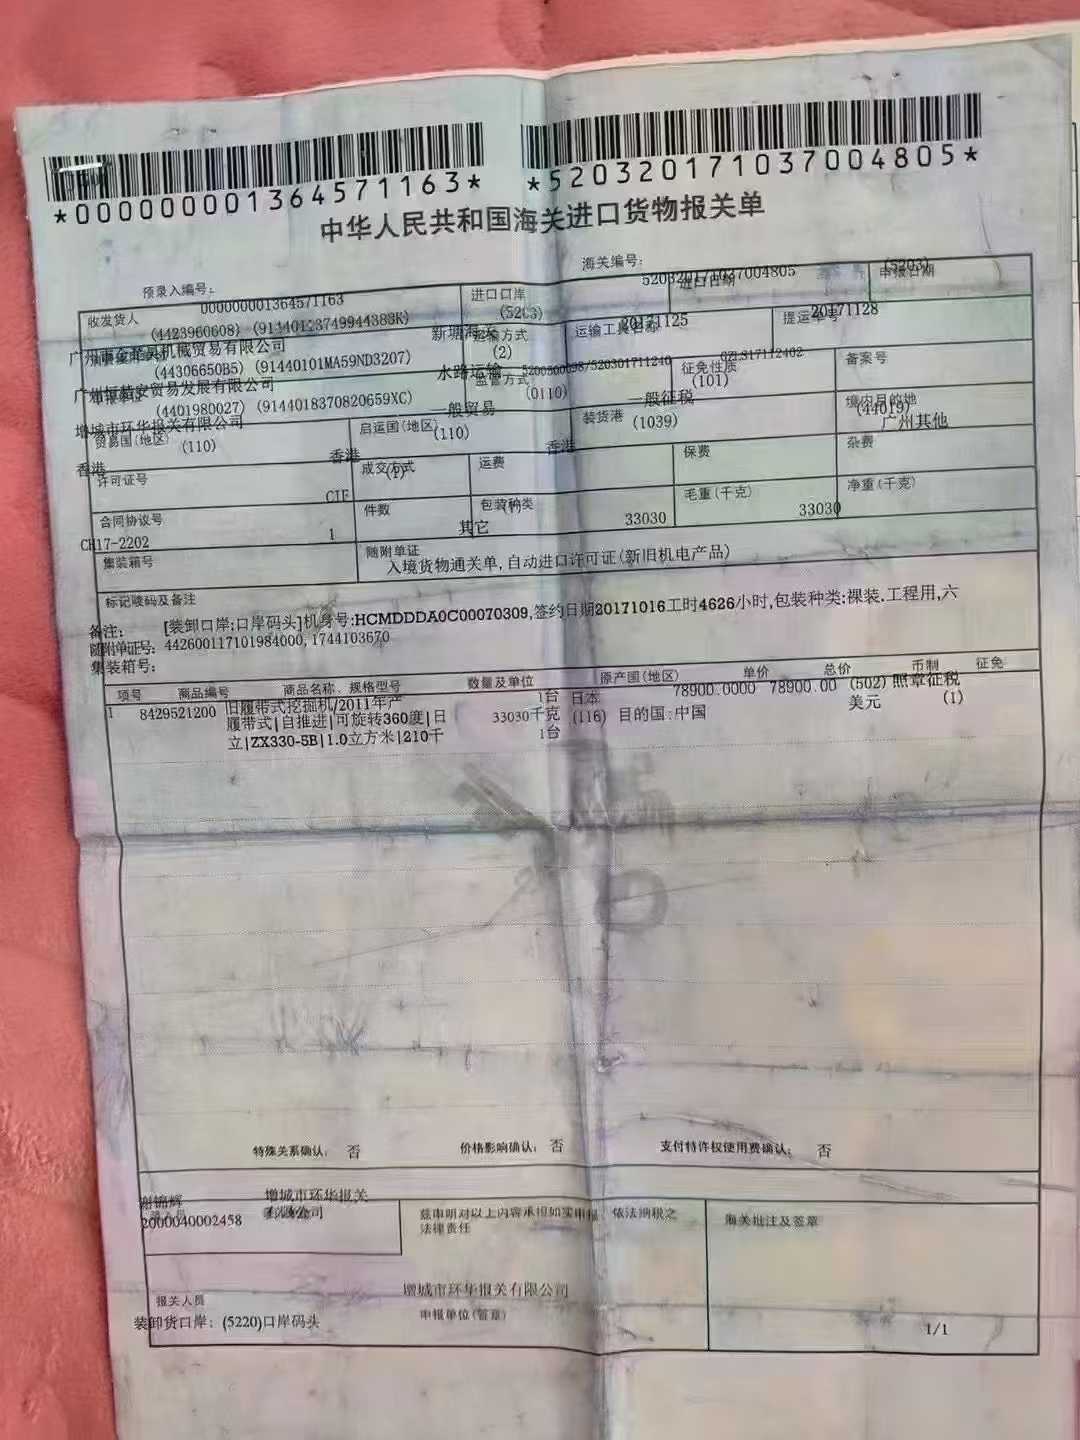 *000000001364571163* *520320171037004805*
中华人民共和国海关进口货物报关单
预录入编号: 000000001364571163 海关编号: 520320171037004805 (5203)
收发货人 (4423960608) 进口口岸 (5203) 进口日期 20171125 申报日期 20171128
机械贸易有限公司 新塘海关
(44306650B5) (91440101MA59ND3207) 运输方式 (2) 运输工具名称 提运单号
贸易发展有限公司 水路运输
申报单位 (4401980027) (9144018370820659XC) 监管方式 (0110) 征免性质 (101) 备案号
增城市环华报关有限公司 一般贸易 一般征税
贸易国(地区) (110) 启运国(地区) (110) 装货港 (1039) 境内目的地 (44019)
香港 香港 香港 广州其他
许可证号 成交方式 (1) 运费 保费 杂费
CIF
合同协议号 件数 包装种类 毛重(千克) 净重(千克)
CH17-2202 1 其它 33030 33030
集装箱号 随附单证
入境货物通关单,自动进口许可证(新旧机电产品)
标记唛码及备注
备注: [装卸口岸:口岸码头]机身号:HCMDDDA0C00070309,签约日期20171016工时4626小时,包装种类:裸装.工程用,六
随附单证号: 442600117101984000, 1744103670
集装箱号:
项号 商品编号 商品名称、规格型号 数量及单位 原产国(地区) 单价 总价 币制 征免
1 8429521200 旧履带式挖掘机/2011年产 1台 日本 78900.0000 78900.00 (502) 照章征税
履带式|自推进|可旋转360度|日 33030千克 (116) 目的国:中国 美元 (1)
立|ZX330-5B|1.0立方米|210千 1台
特殊关系确认: 否 价格影响确认: 否 支付特许权使用费确认: 否
谢锦辉 增城市环华报关
有限公司
2000040002458 兹申明对以上内容承担如实申报、依法纳税之
法律责任 海关批注及签章
增城市环华报关有限公司
报关人员 申报单位(签章)
装卸货口岸: (5220)口岸码头 1/1